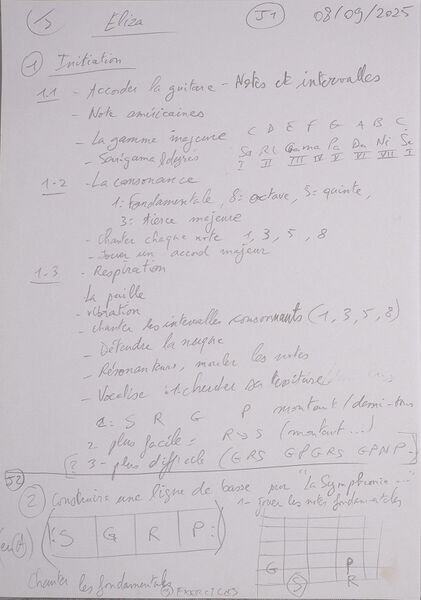 Eliza J1 08/09/2025
1 Initiation
1.1 - Accorder la guitare - Notes et intervalles
- Note américaines
- La gamme majeure C D E F G A B C
- Sarigama & degrés Sa Ri Ga ma Pa Da Ni Sa
I II III IV V VI VII I
1-2 - La consonance
1: Fondamentale, 8= octave, 5= quinte,
3= tierce majeure
- Chanter chaque note 1, 3, 5, 8
- Jouer un accord majeur
1-3 - Respiration
La paille
- vibration
- chanter les intervalles consonnants (1, 3, 5, 8)
- Détendre la nuque
- Résonateurs, les notes
- Vocalise 1: chercher sa
1: S R G P montant / demi-tons
2 plus facile = R > S (montant ...)
3 - plus difficile (GRS GPGRS GPNP-
J2
2 Construire une ligne de basse sur "la Symphonie ..."
1- jouer les notes fondamentales
(: S G R P :)
G S P
R
Chanter les fondamentales EXERCICES